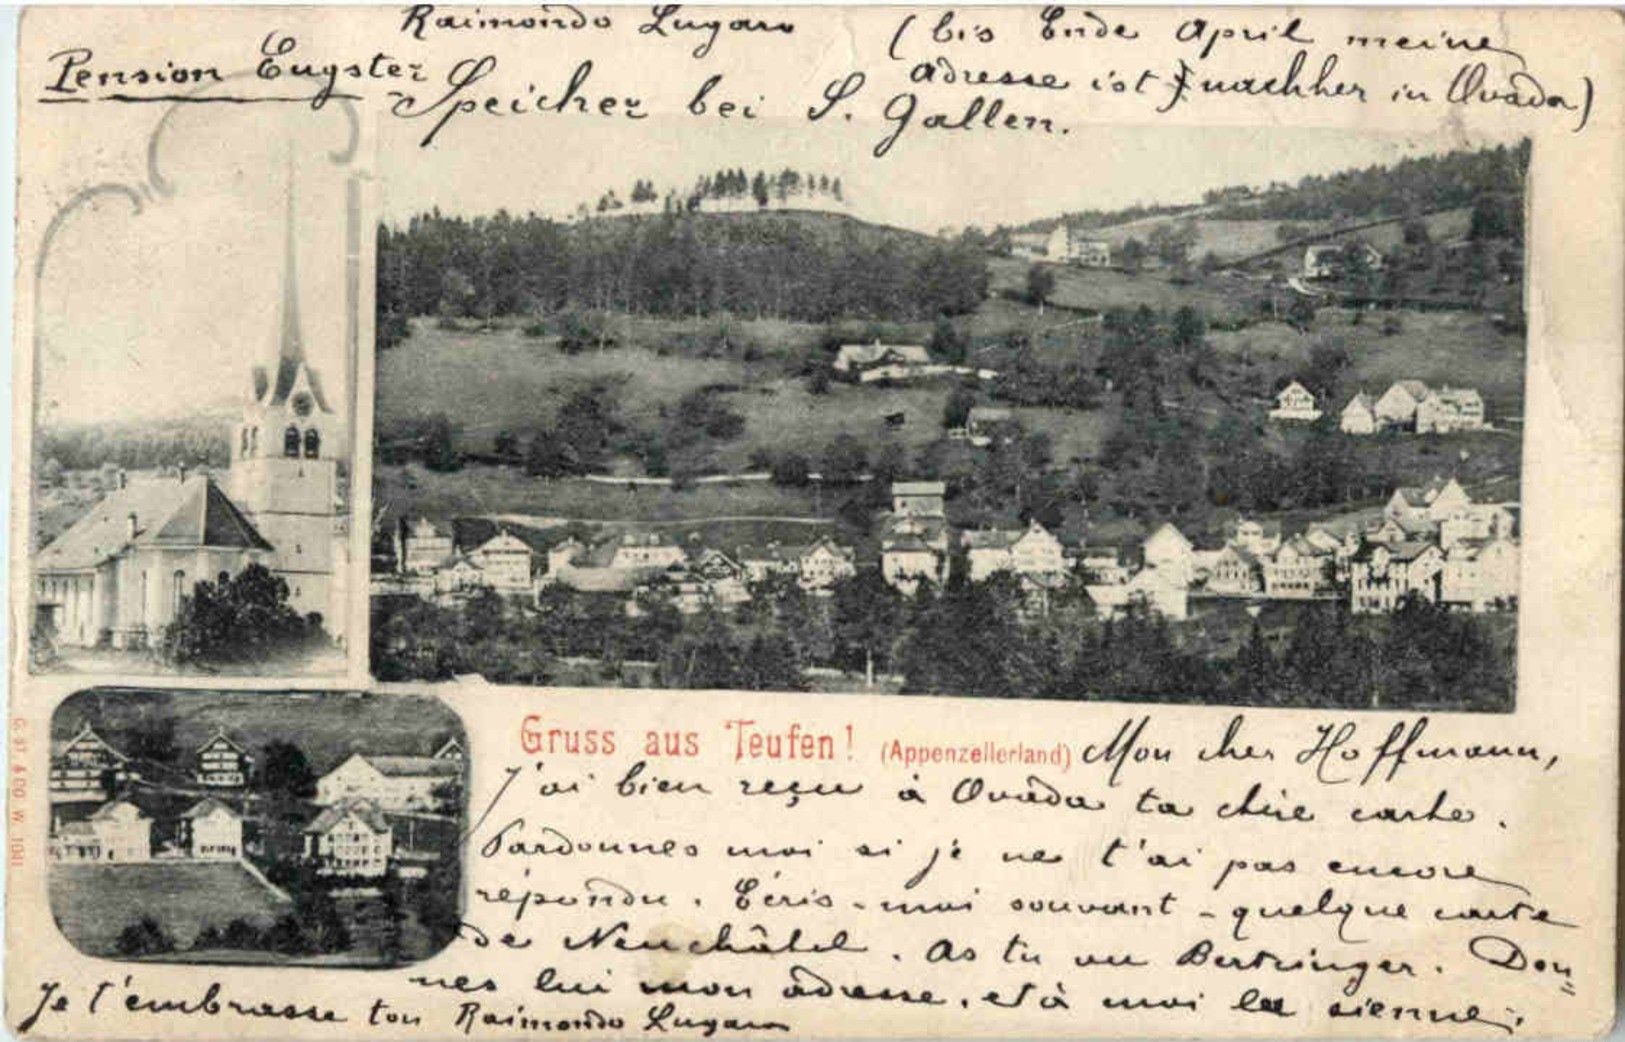 Raimondo Lugaro (bis Ende April meine
Pension Eugster adresse ist nachher in Ovada)
Speicher bei S. Gallen.
Gruss aus Teufen! (Appenzellerland) Mon cher Hoffmann,
J'ai bien reçu à Ovada ta chère carte.
Pardonnes moi si je ne t'ai pas encore
répondu. Écris-moi souvant - quelque carte
de Neuchâtel. As tu vu Bertringer. Don
nes lui mon adresse, et à moi la sienne.
Je t'embrasse ton Raimondo Lugaro